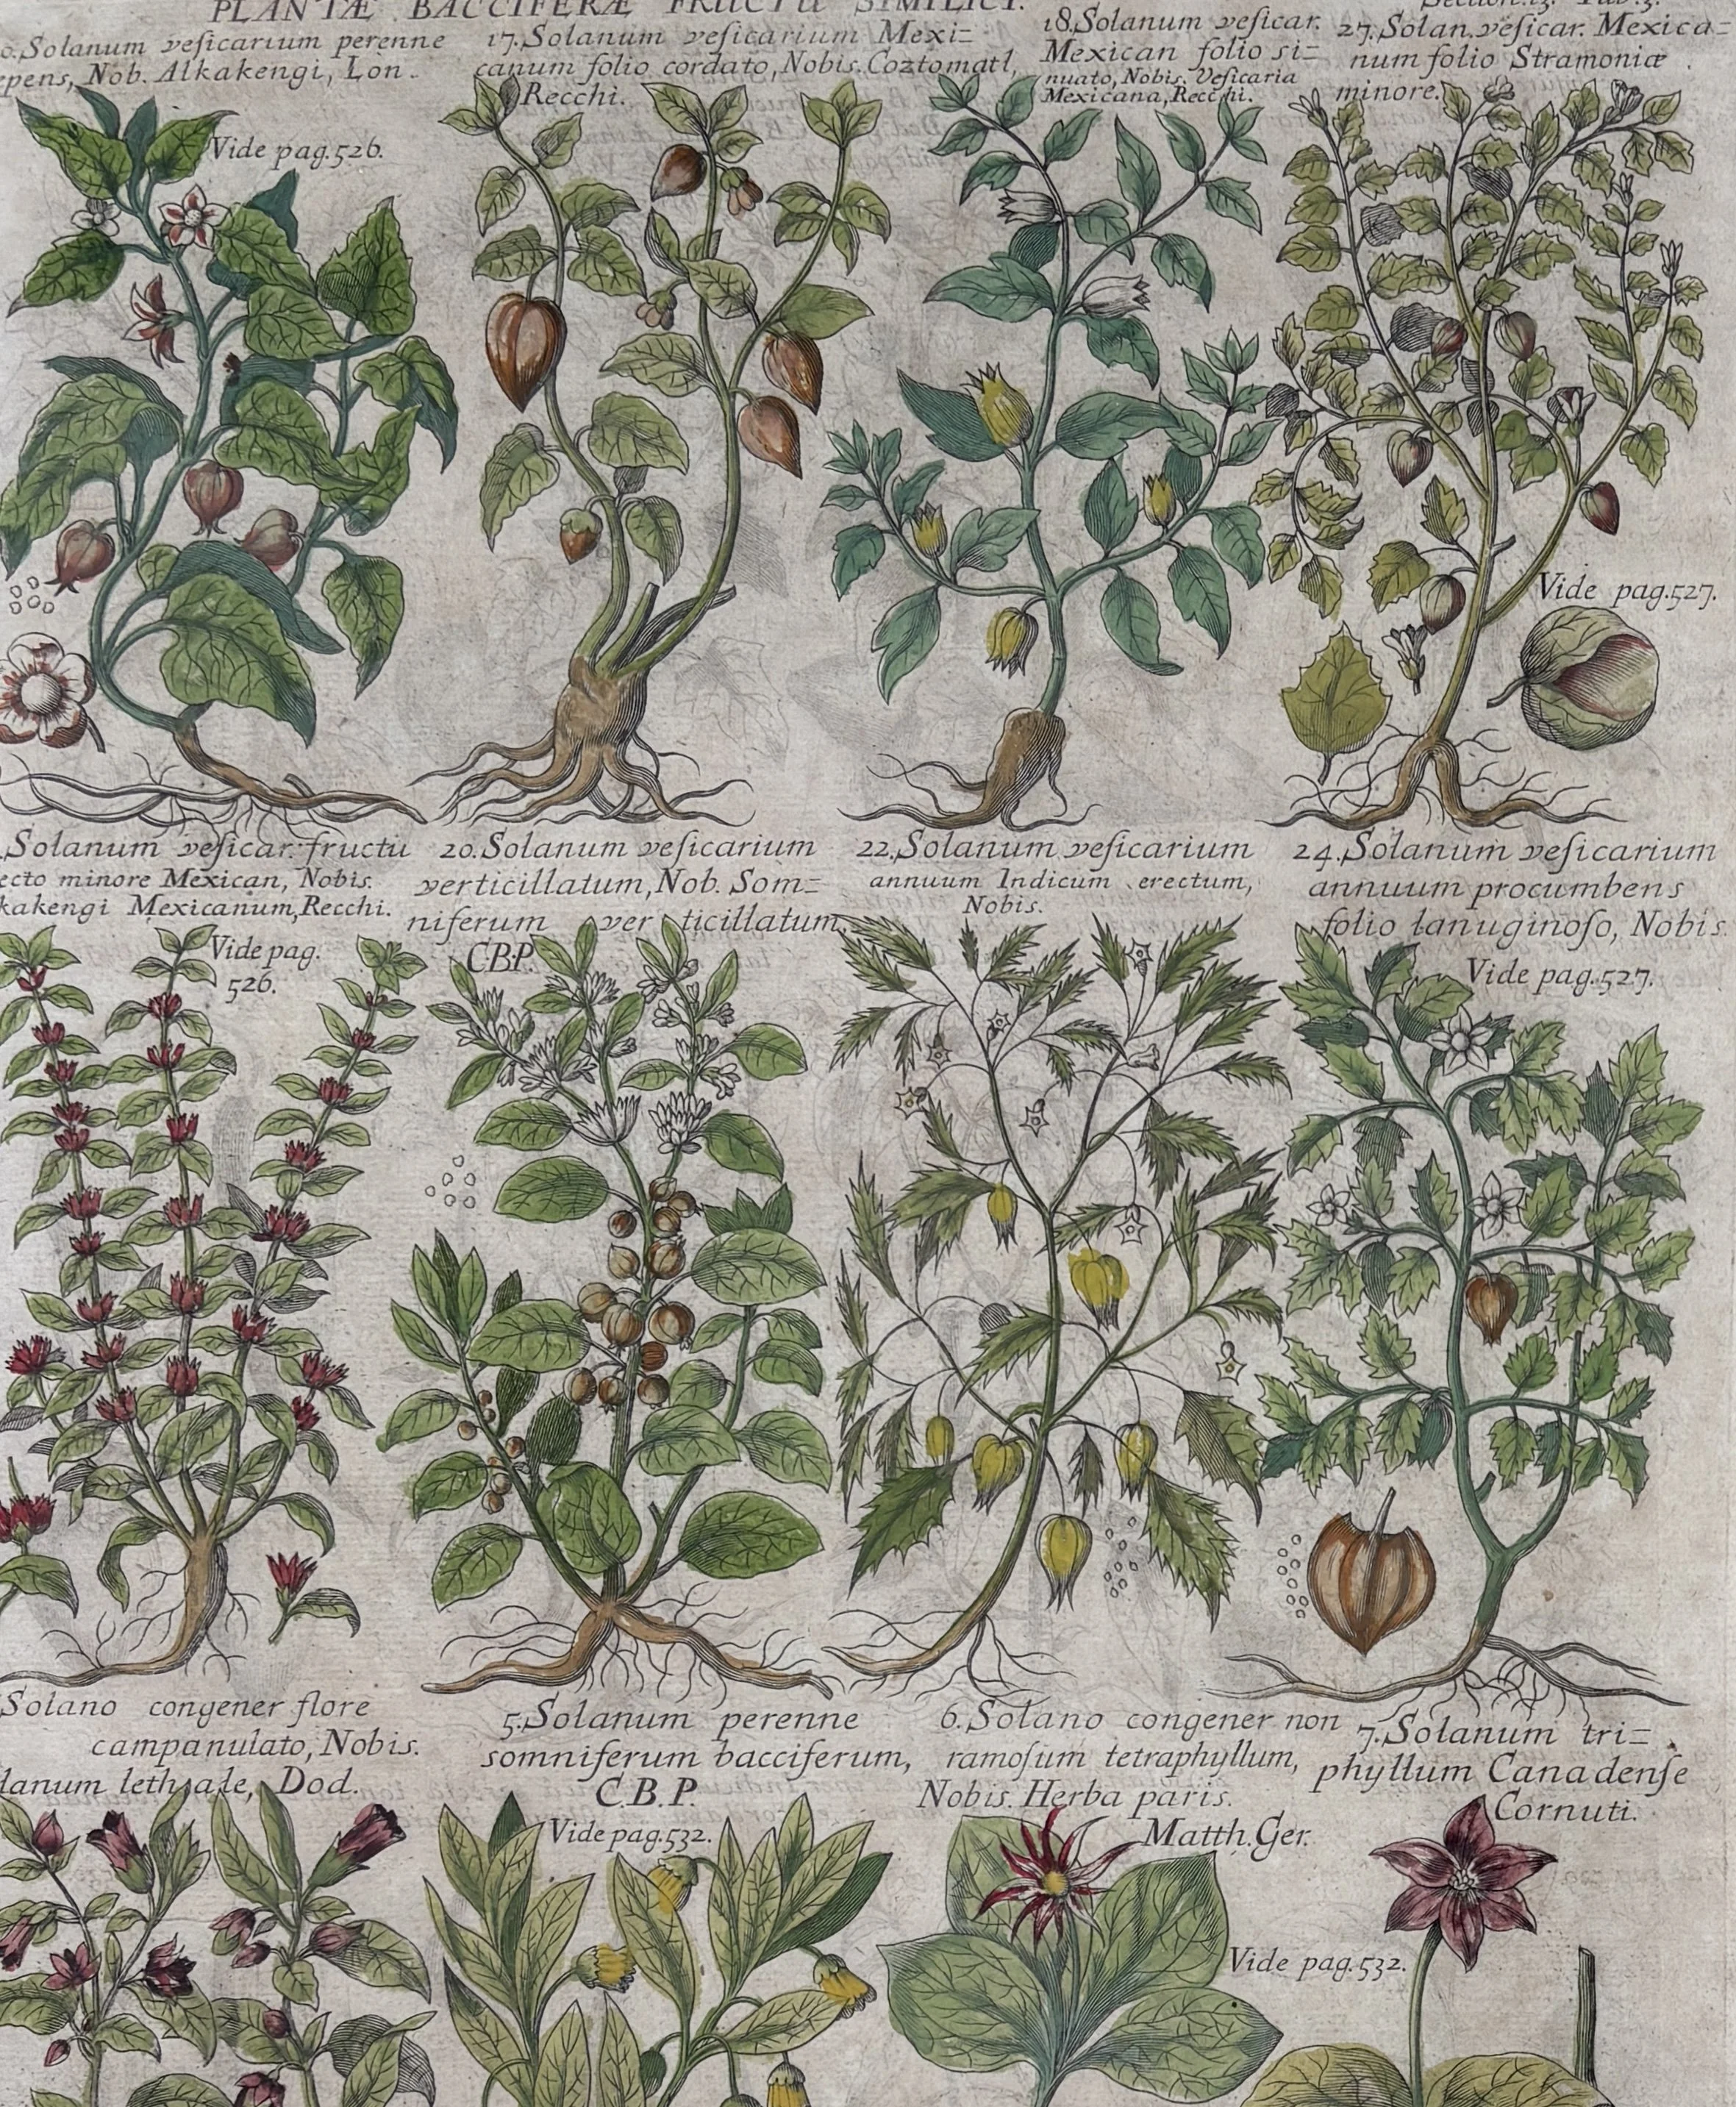 PLANTÆ BACCIFERÆ FRUCTU SIMPLICI.
Section.13. Tab.3.
0.Solanum veſicarium perenne
epens, Nob. Alkakengi, Lon.
Vide pag.526.
17.Solanum veſicarium Mexi=
canum folio cordato, Nobis. Coztomatl,
Recchi.
18.Solanum veſicar.
Mexican folio si=
nuato, Nobis. Veſicaria
Mexicana, Recchi.
27.Solan. veſicar. Mexica=
num folio Stramoniæ
minore.
Vide pag.527.
.Solanum veſicar. fructu
ecto minore Mexican, Nobis.
kakengi Mexicanum, Recchi.
Vide pag.
526.
20.Solanum veſicarium
verticillatum, Nob. Som=
niferum verticillatum,
C.B.P.
22.Solanum veſicarium
annuum Indicum erectum,
Nobis.
24.Solanum veſicarium
annuum procumbens
folio lanuginoſo, Nobis.
Vide pag.527.
Solano congener flore
campanulato, Nobis.
lanum lethale, Dod.
5.Solanum perenne
somniferum bacciferum,
C.B.P.
Vide pag.532.
6.Solano congener non
ramoſum tetraphyllum,
Nobis. Herba paris.
Matth. Ger.
7.Solanum tri=
phyllum Canadenſe
Cornuti.
Vide pag.532.